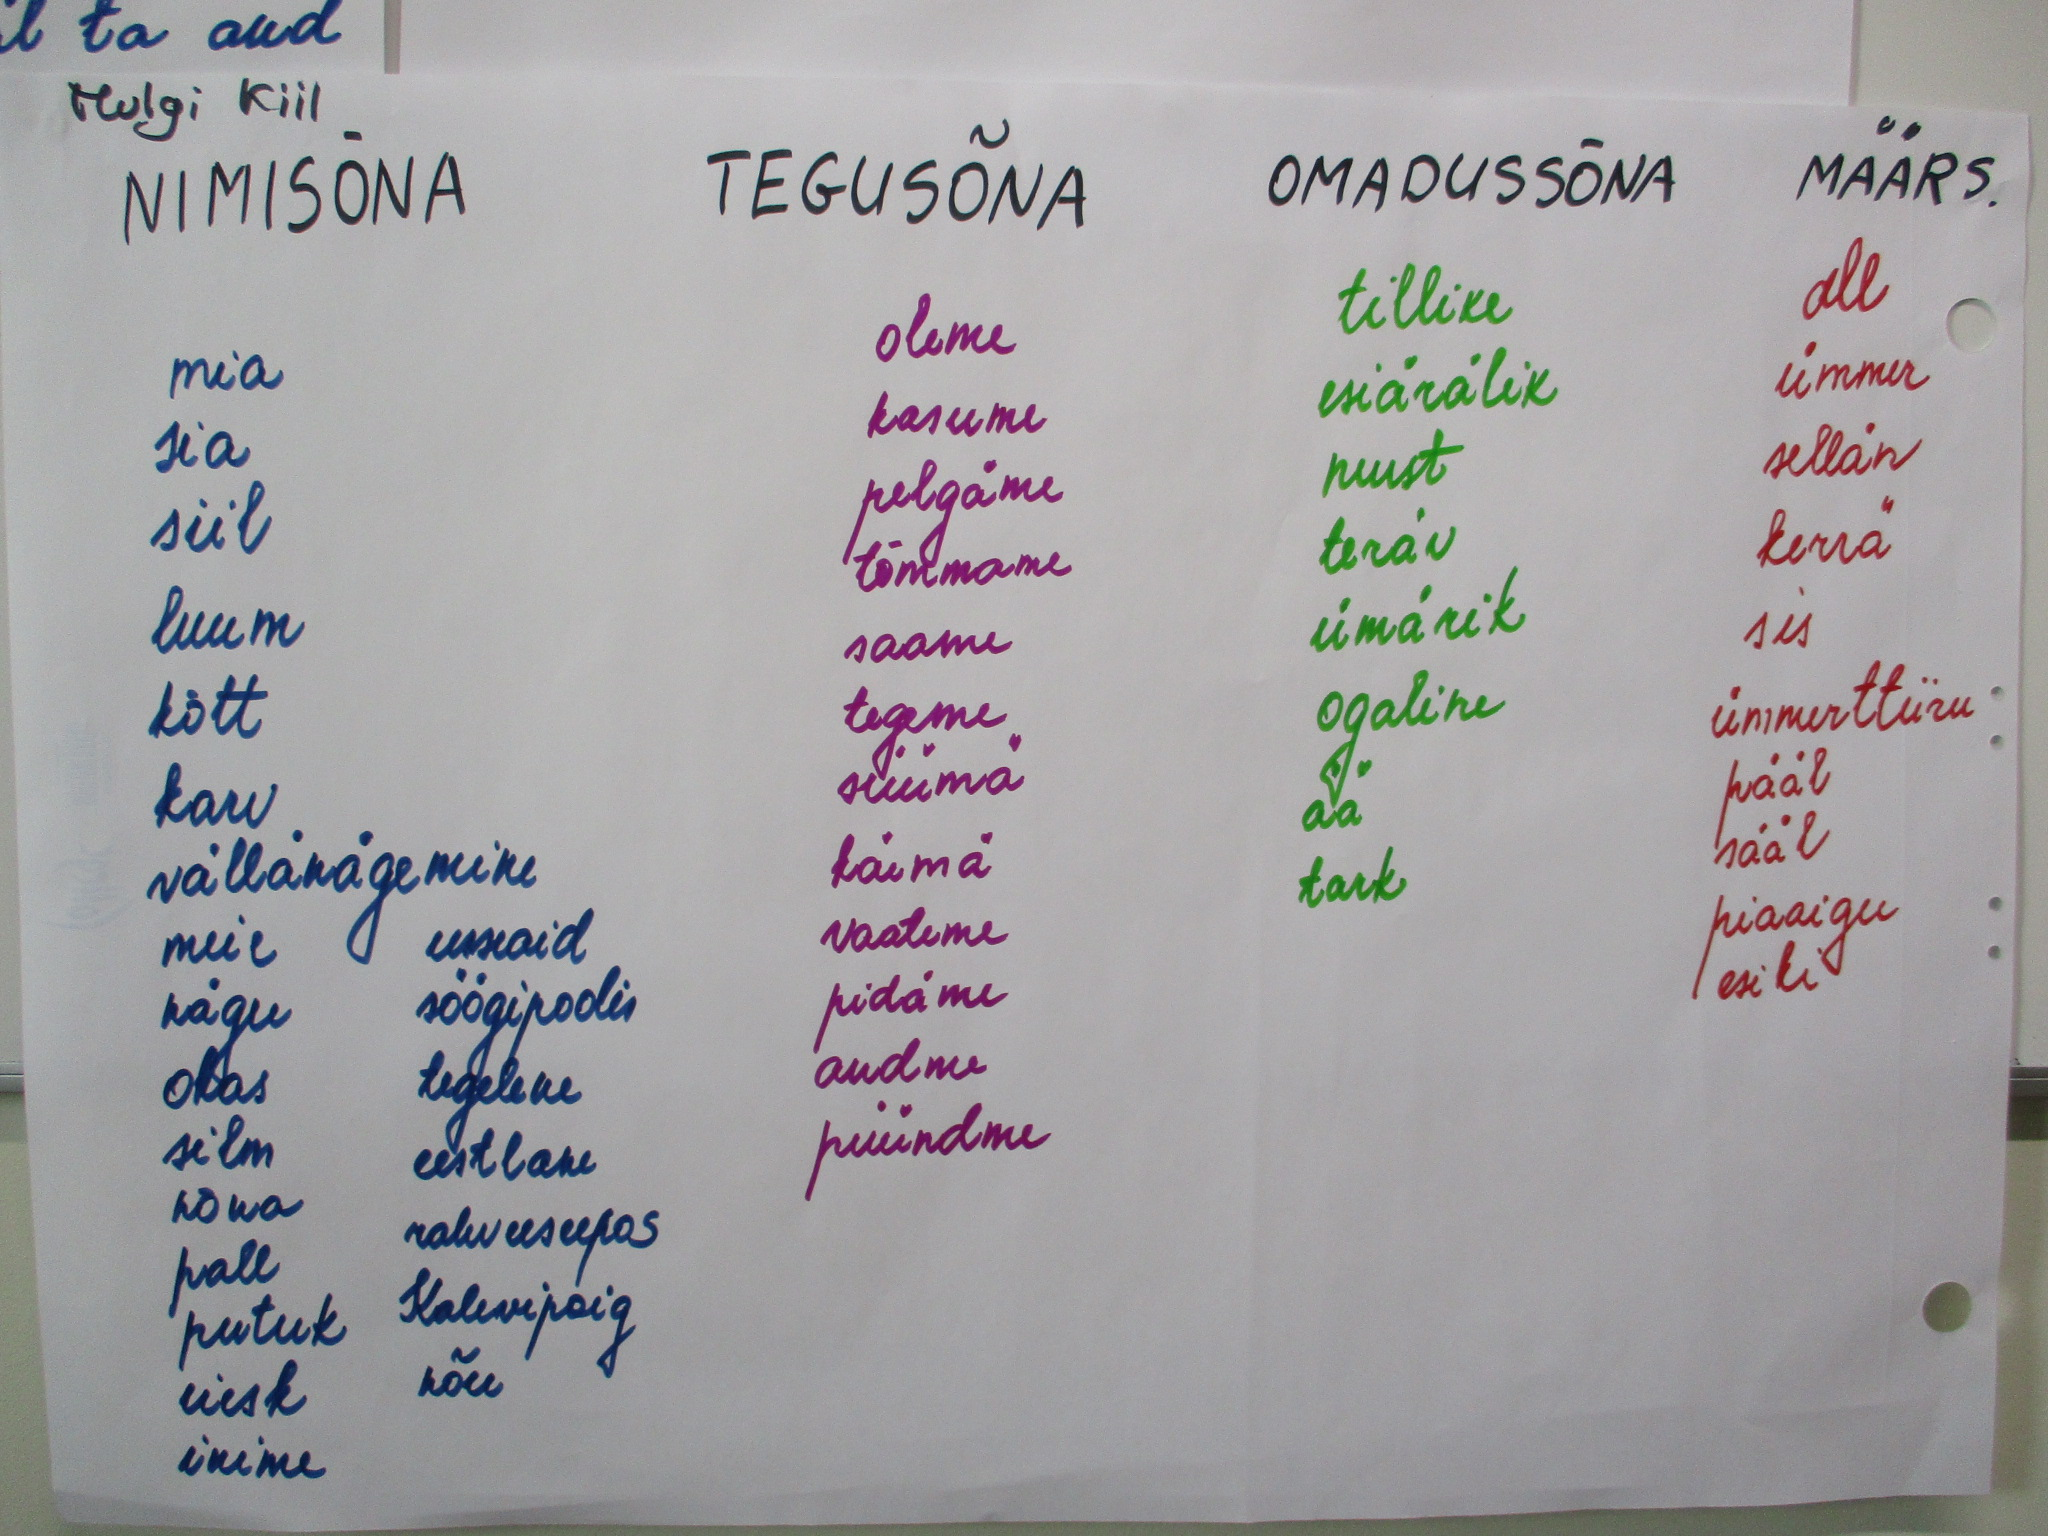 ta aud
Mulgi Kiil
NIMISÕNA
mia
sia
siil
luum
kõtt
karv
vällänägemine
meie
nägu
okas
silm
nõna
pall
putuk
uisk
inime
ussaid
söögipoolis
tegelene
eestlane
rahvuseepos
Kalevipoig
nõu
TEGUSÕNA
oleme
kasume
pelgäme
tõmmame
saame
tegeme
süümä
käimä
vaateme
pidäme
audme
püündme
OMADUSSÕNA
tillike
esiärälik
must
teräv
ümärik
ogaline
ää
tark
MÄÄRS.
all
ümmer
sellän
kerrä
sis
ümmerttiiru
pääl
sääl
piaaigu
esiki